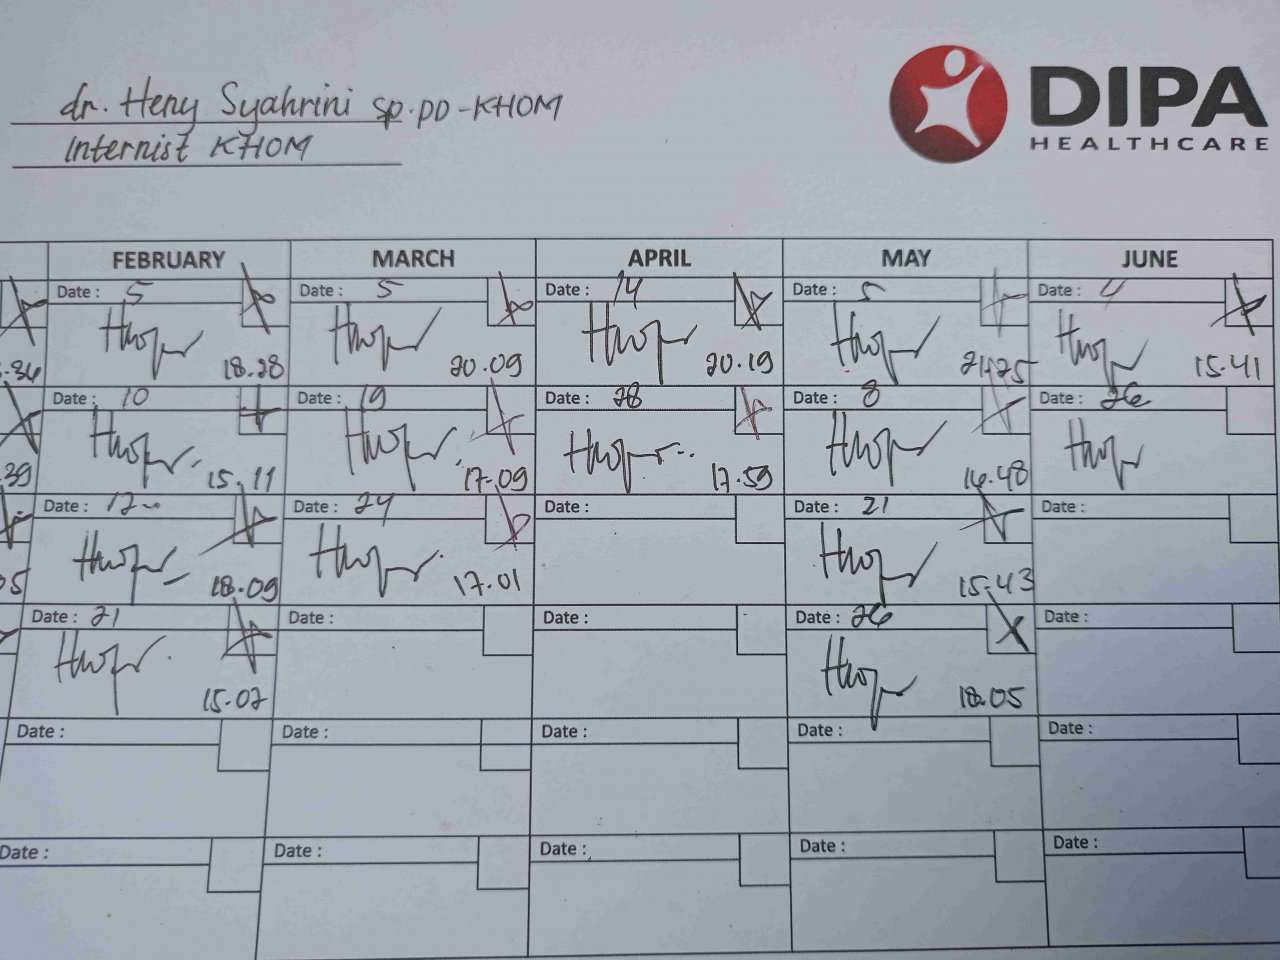 dr. Heny Syahrini sp.PD-KHOM
Internist KHOM
DIPA
HEALTHCARE
FEBRUARY MARCH APRIL MAY JUNE
Date : 5 Date : 5 Date : 14 Date : 5 Date : 4
18.28 20.09 20.19 21.25 15.41
Date : 10 Date : 19 Date : 28 Date : 8 Date : 26
.39 15.11 17.09 17.59 16.48
Date : 12 Date : 24 Date : Date : 21 Date :
05 18.09 17.01 15.43
Date : 21 Date : Date : Date : 26 Date :
15.07 18.05
Date : Date : Date : Date : Date :
Date : Date : Date : Date : Date :